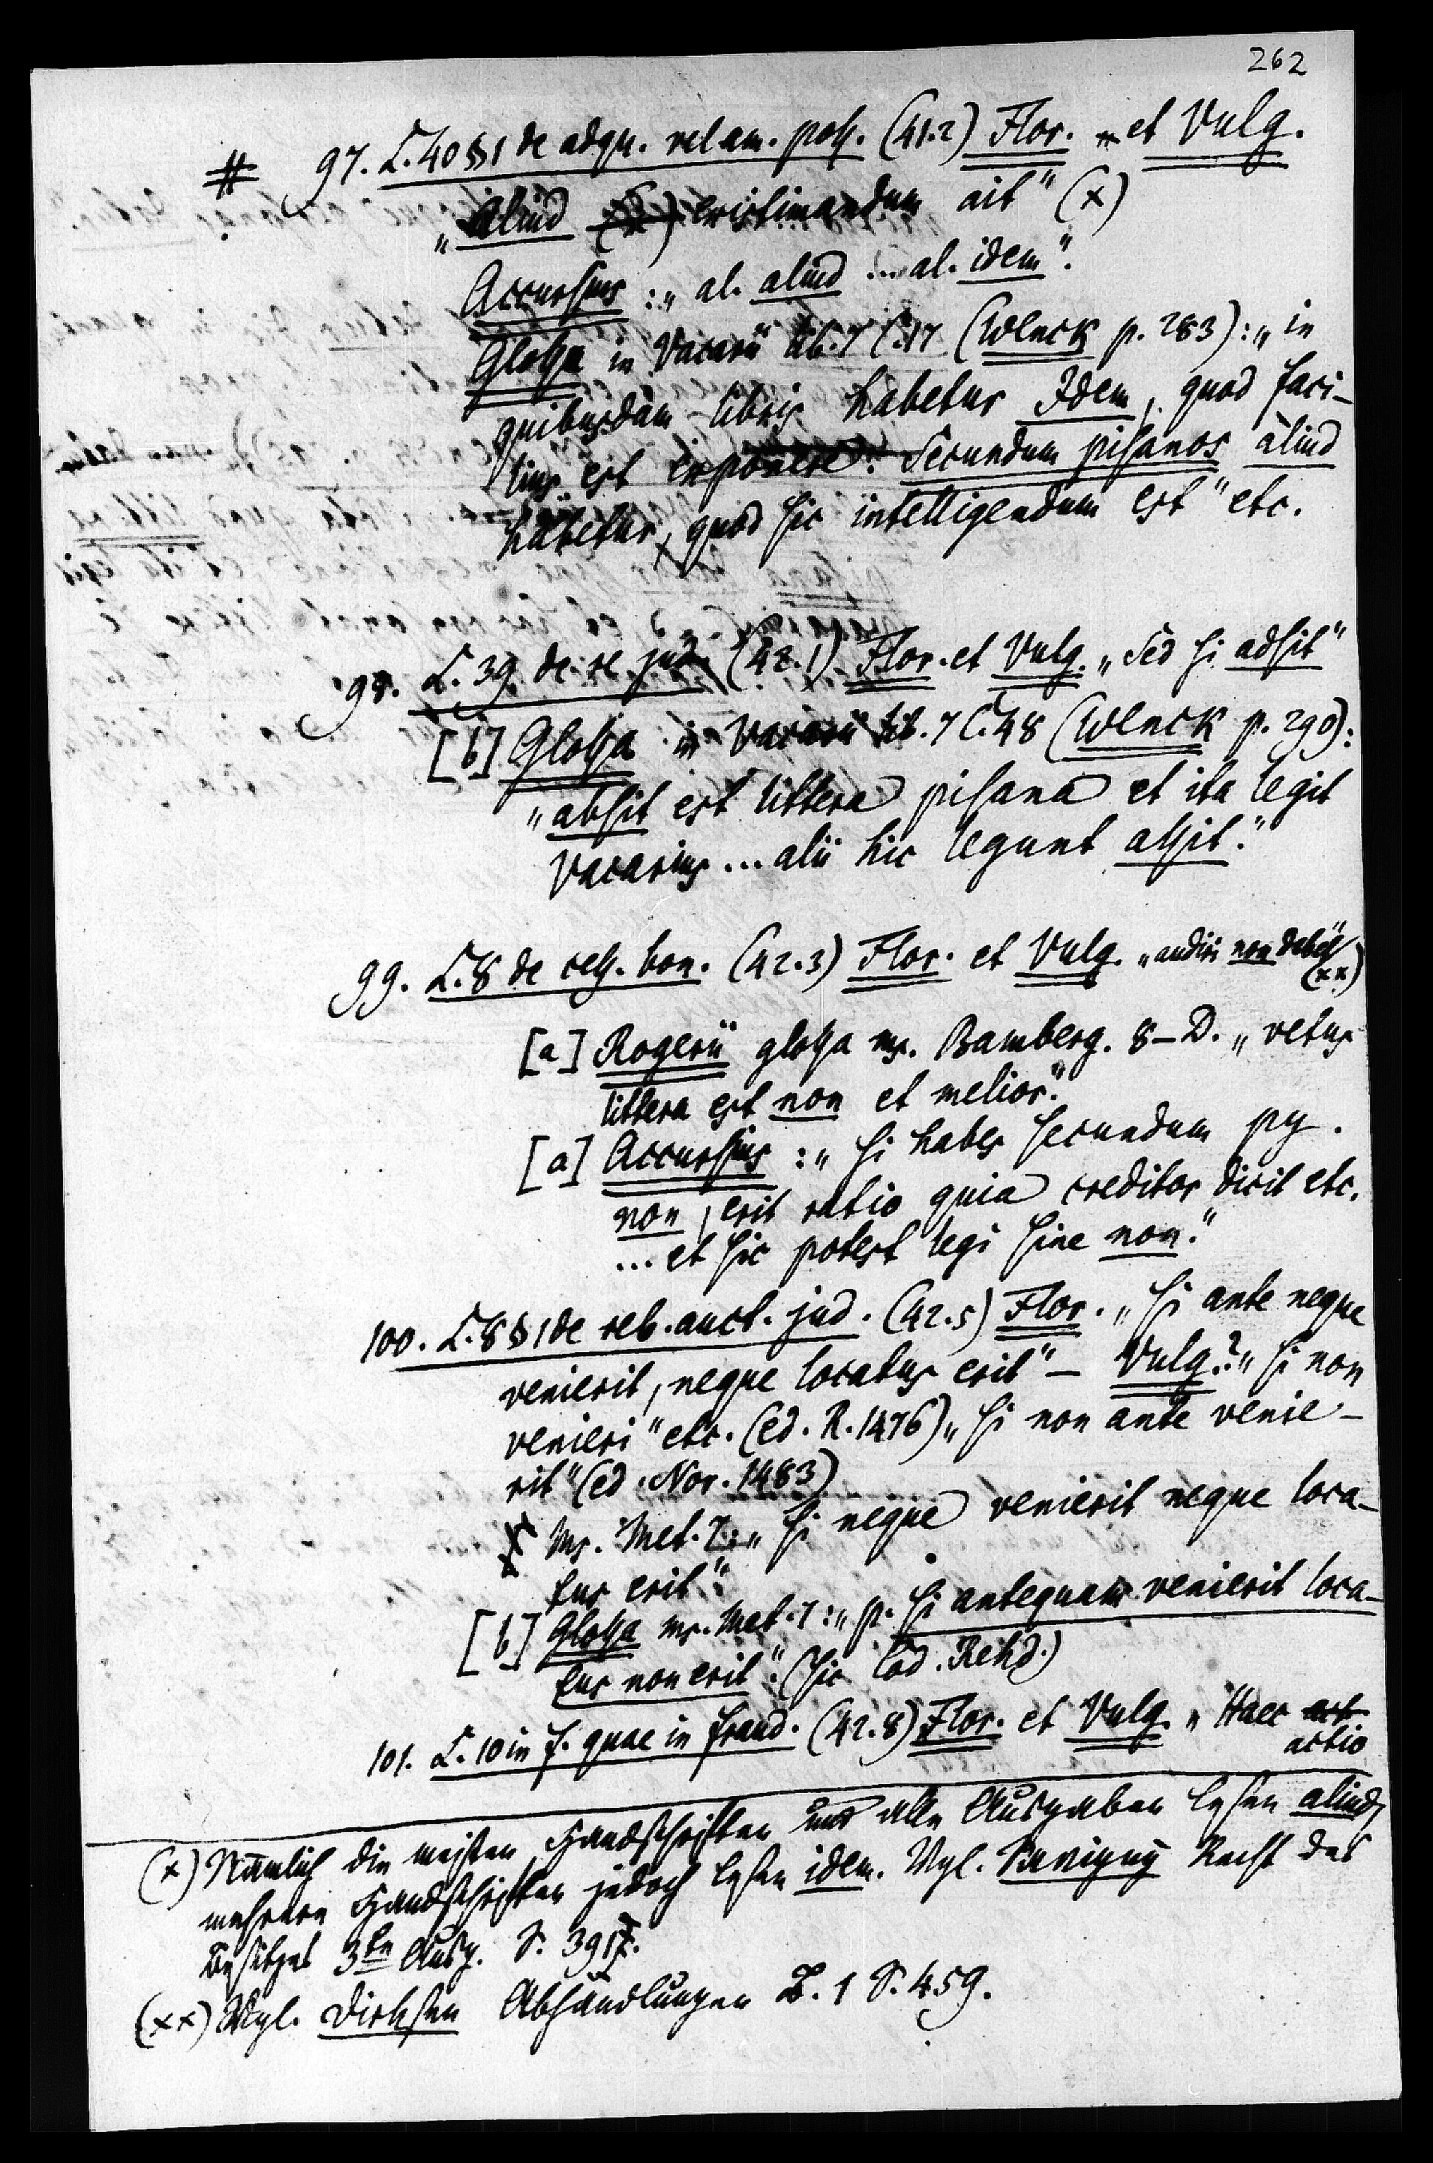 262
# 97. L. 40 § 1 de adqu. vel am. poss. (41.2) Flor. et Vulg.
„Aliud existimandum ait“ (x)
Accursius: „al. aliud ... al. idem“.
Glossa in Vacarii lib. 7 C. 17 (Wenck p. 283): „in
quibusdam libris habetur Idem, quod faci-
lius est exponere. Secundum pisanos aliud
habetur, quod sic intelligendum est“ etc.
98. L. 39 de re jud. (42.1) Flor. et Vulg. „Sed si adsit“
[b] Glossa in Vacarii lib. 7 C. 48 (Wenck p. 290):
„absit est littera pisana et ita legit
Vacarius ... alii hic legunt assit.“
99. L. 8 de cess. bon. (42.3) Flor. et Vulg. „audiri non debes“
(xx)
[a] Rogerii glossa ms. Bamberg. 8-D. „vetus
littera est non et melior“.
[a] Accursius: „si habes secundum py.
non, erit ratio quia creditor dicit etc.
... et sic potest legi sine non.“
100. L. 8 § 1 de reb. auct. jud. (42.5) Flor. „si ante neque
venierit, neque locatus erit“ – Vulg.? „si non
venieri“ etc. (ed. R. 1476) „si non ante venie-
rit“ (ed. Nor. 1483)
x Ms. Met. 7: „si neque venierit neque loca-
tus erit“.
[b] Glossa ms. Met. 7: „p. si antequam venierit loca-
tus non erit“. (sic Cod. Rehd.)
101. L. 10 in f. quae in fraud. (42.8) Flor. et Vulg. „Haec
actio
(x) Nämlich die meisten Handschriften und alle Ausgaben lesen aliud,
mehrere Handschriften jedoch lesen idem. Vgl. Savigny Recht des
Besitzes 3te Ausg. S. 391
(xx) Vgl. Dirksen Abhandlungen B. 1 S. 459.